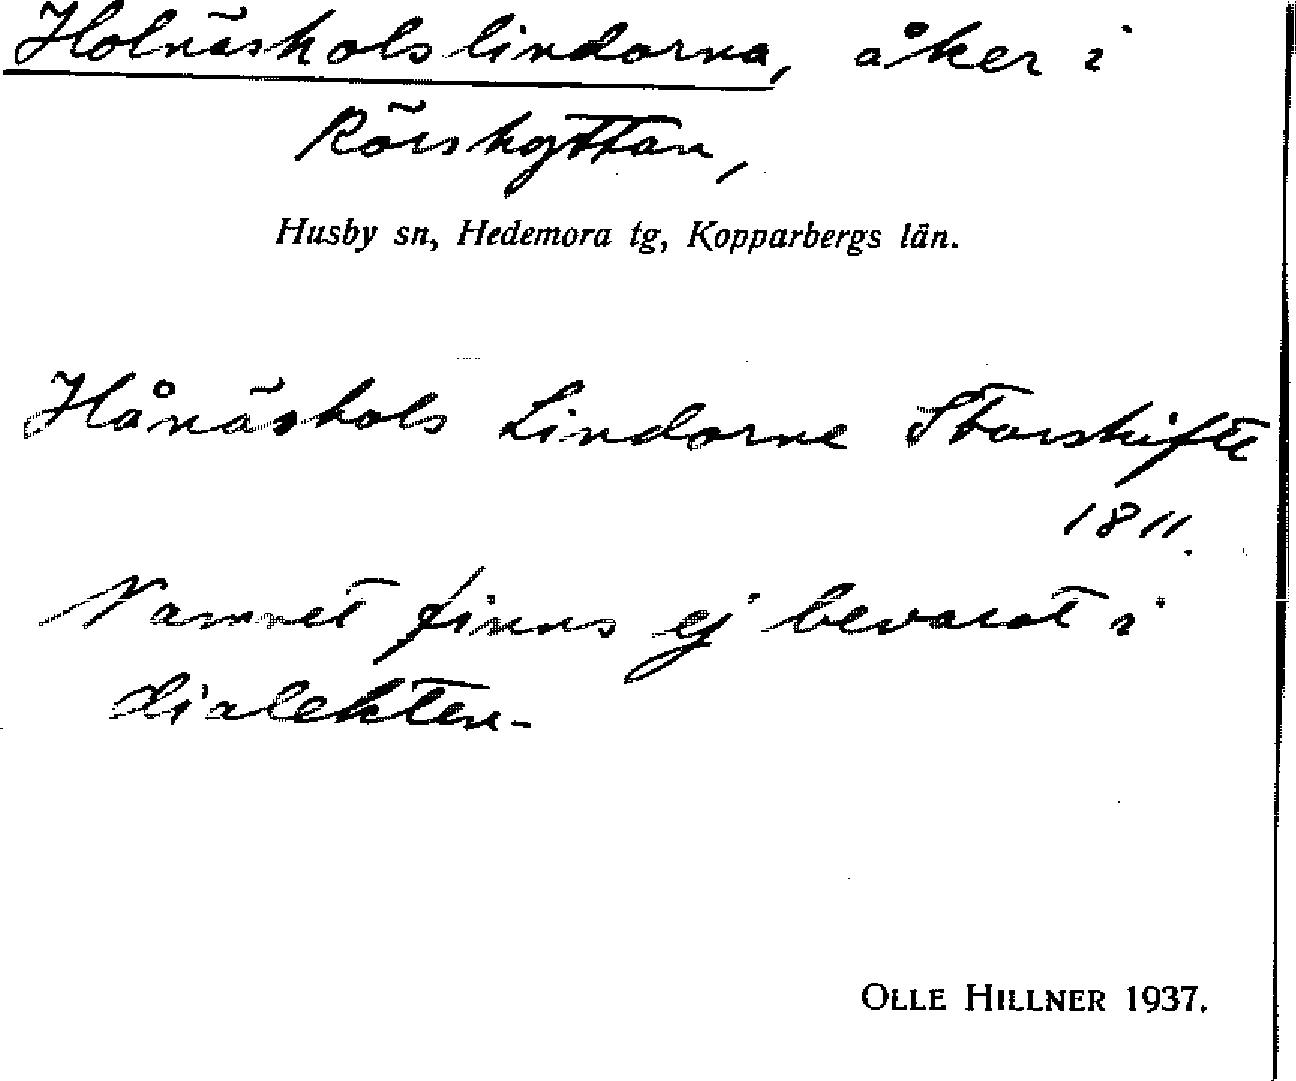 Holnäsholslindorna, åker i
Rörshyttan,
Husby sn, Hedemora tg, Kopparbergs län.
Hånäshols Lindorne Storskifte
1811.
Namnet finns ej bevarat i
dialekten.
OLLE HILLNER 1937.